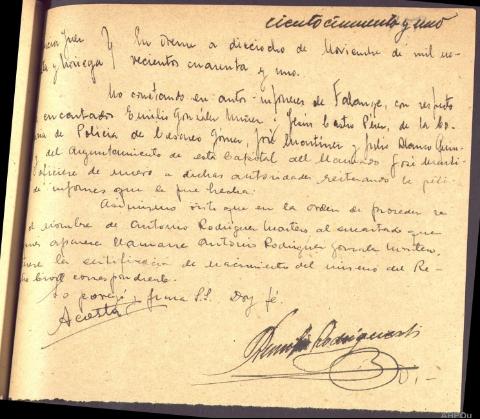 ciento cincuenta y uno
En Orense a dieciocho de Noviembre de mil no-
vecientos cuarenta y uno.
No constando en autos informes de Falange, con respeto
encartados Emilio González Núñez, Jesús Castro Pérez, de la Co-
de Policía de Cesáreo Gómez, José Martínez y Julio Blanco
y del Ayuntamiento de esta Capital del llamado José Martí-
de nuevo a dichas autoridades reiterando la peti-
de informes que le fue hecha.
Asimismo visto que en la orden de proceder se
el nombre de Antonio Rodríguez Montero al encartado que
aparece llamarse Antonio Rodríguez González Montero,
la certificación de nacimiento del mismo del Re-
Civil correspondiente.
Lo proveyó y firma S.S. Doy fé.
Acosta
Rodríguez
AHPOu